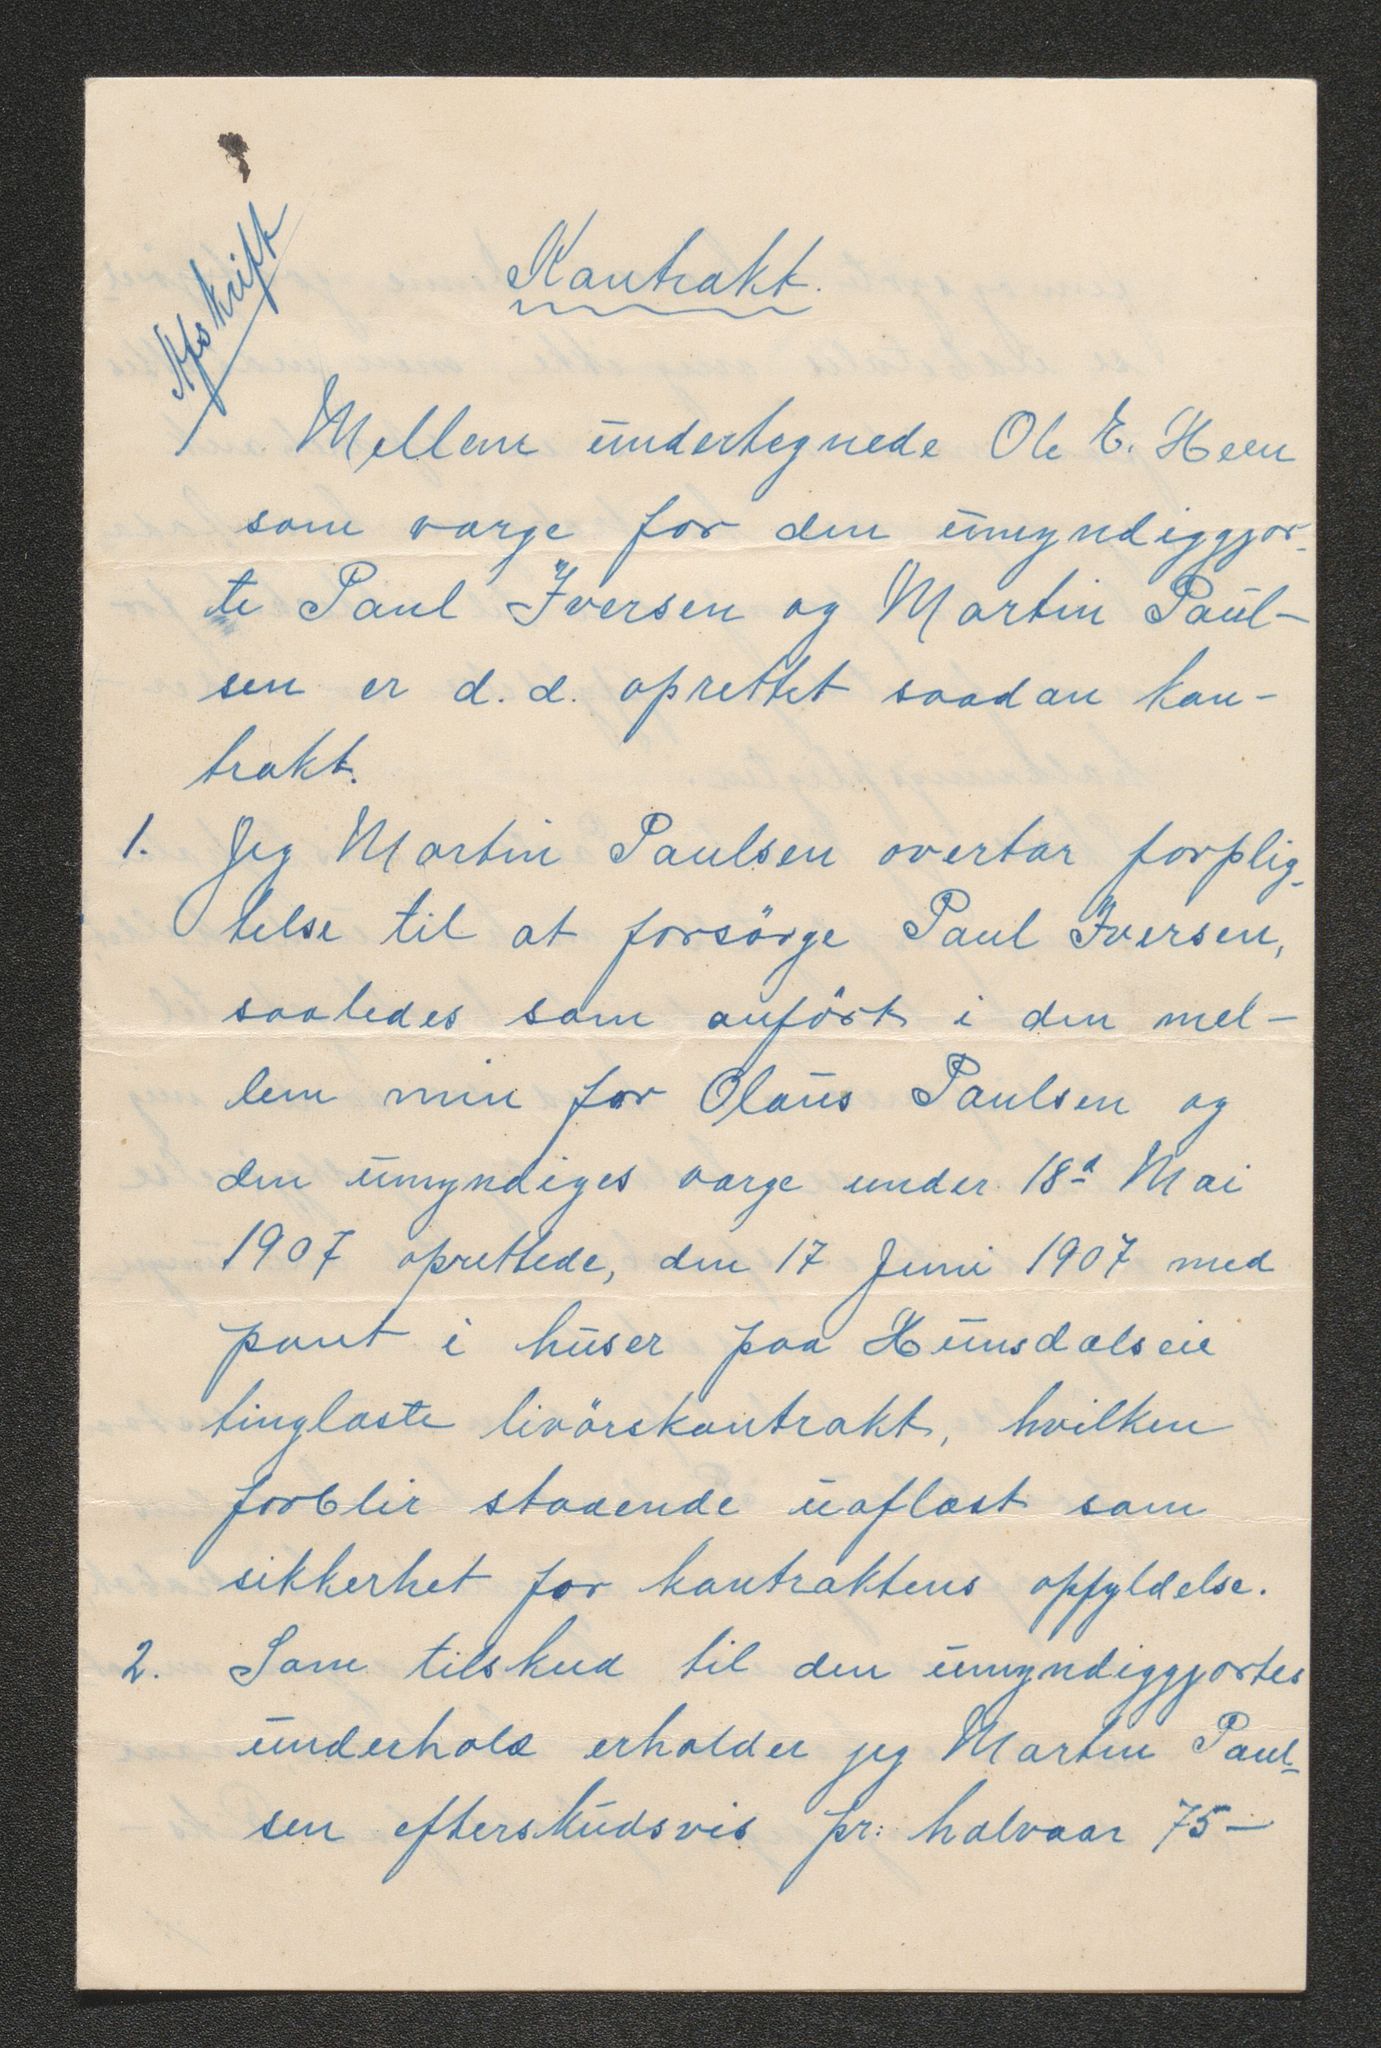 Afskrift
Kontrakt.
Mellem undertegnede Ole E. Heen
som værge for den umyndiggjor-
te Paul Iversen og Martin Paul-
sen er d.d. oprettet saadan kon-
trakt.
1. Jeg Martin Paulsen overtar forplig-
telse til at forsörge Paul Iversen,
saaledes som anfört i den mel-
lem min far Olaus Paulsen og
den umyndiges værge under 18d Mai
1907 oprettede, den 17 Juni 1907 med
pant i huser paa Hunsdalseie
tinglæste livörskontrakt, hvilken
forblir staaende uaflæst som
sikkerhet for kontraktens opfyldelse.
2. Som tilskud til den umyndiggjortes
underhold erholder jeg Martin Paul-
sen efterskudsvis pr: halvaar 75-